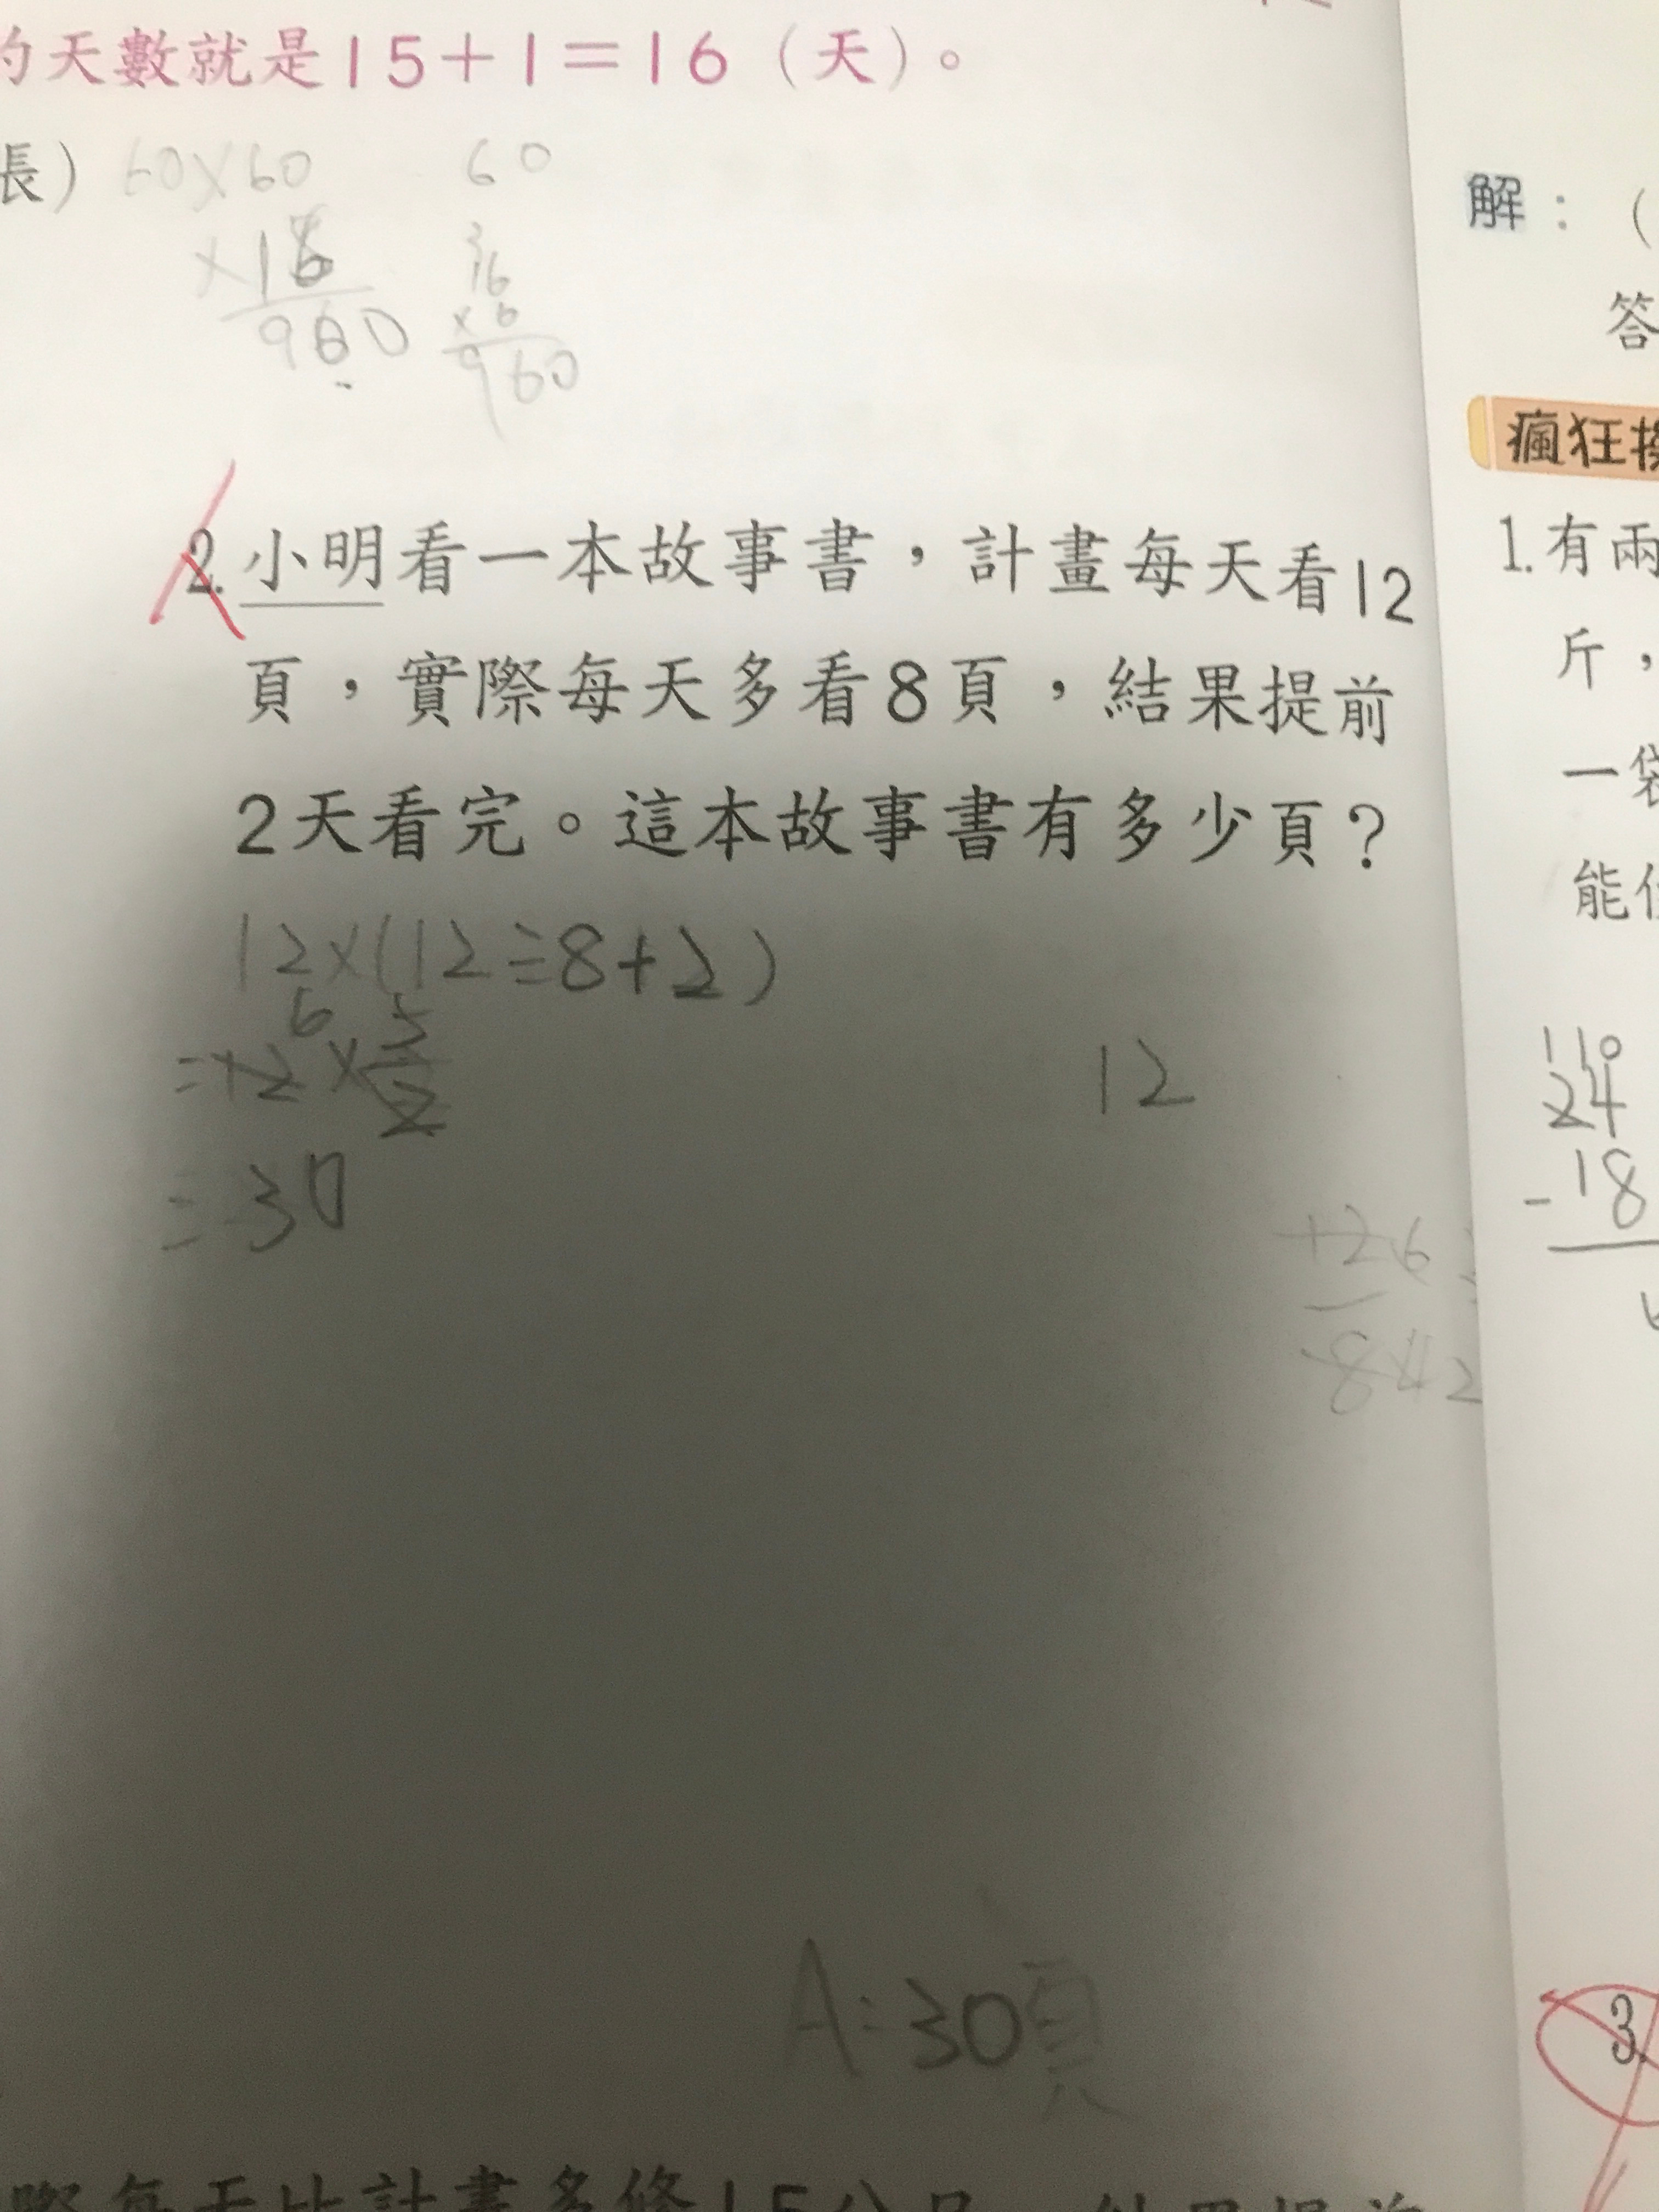 的天數就是15+1=16（天）。
長） 60×60 60
×16 16
960 ×6
960
2. 小明看一本故事書，計畫每天看12
頁，實際每天多看8頁，結果提前
2天看完。這本故事書有多少頁？
12×(12÷8+2)
6 5
=12×2
12
=30
126
8 42
A:30頁
際每天比計畫多修15公尺，結果提前
解：（
答
瘋狂
1. 有兩
斤，
一袋
能
110
24
-18
3.